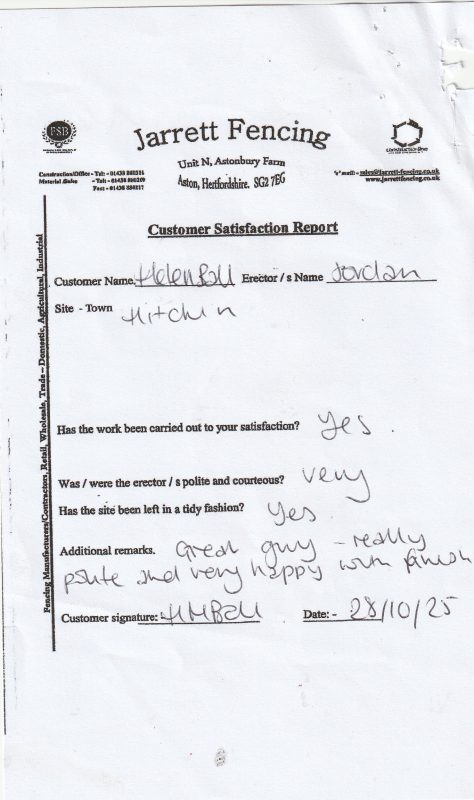 FSB
Jarrett Fencing
constructionline
Unit N, Astonbury Farm
Aston, Hertfordshire. SG2 7EG
Construction/Office - Tel: - 01438
Material Sales - Tel: - 01438
Fax: - 01438
'e' mail: - sales@jarrett-fencing.co.uk
www.jarrettfencing.co.uk
Customer Satisfaction Report
Customer Name. Helen Ball Erector / s Name Jordan
Site - Town Hitchin
Has the work been carried out to your satisfaction? Yes.
Was / were the erector / s polite and courteous? very
Has the site been left in a tidy fashion? Yes.
Additional remarks. Great guy - really
polite and very happy with finish
Customer signature: HMBall Date: - 28/10/25
Fencing Manufacturers/Contractors, Retail, Wholesale, Trade – Domestic, Agricultural, Industrial